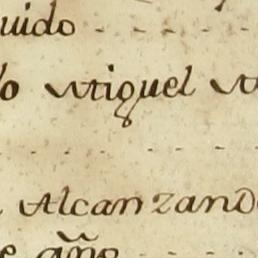 uido
lo Miguel
Alcanzando
e año